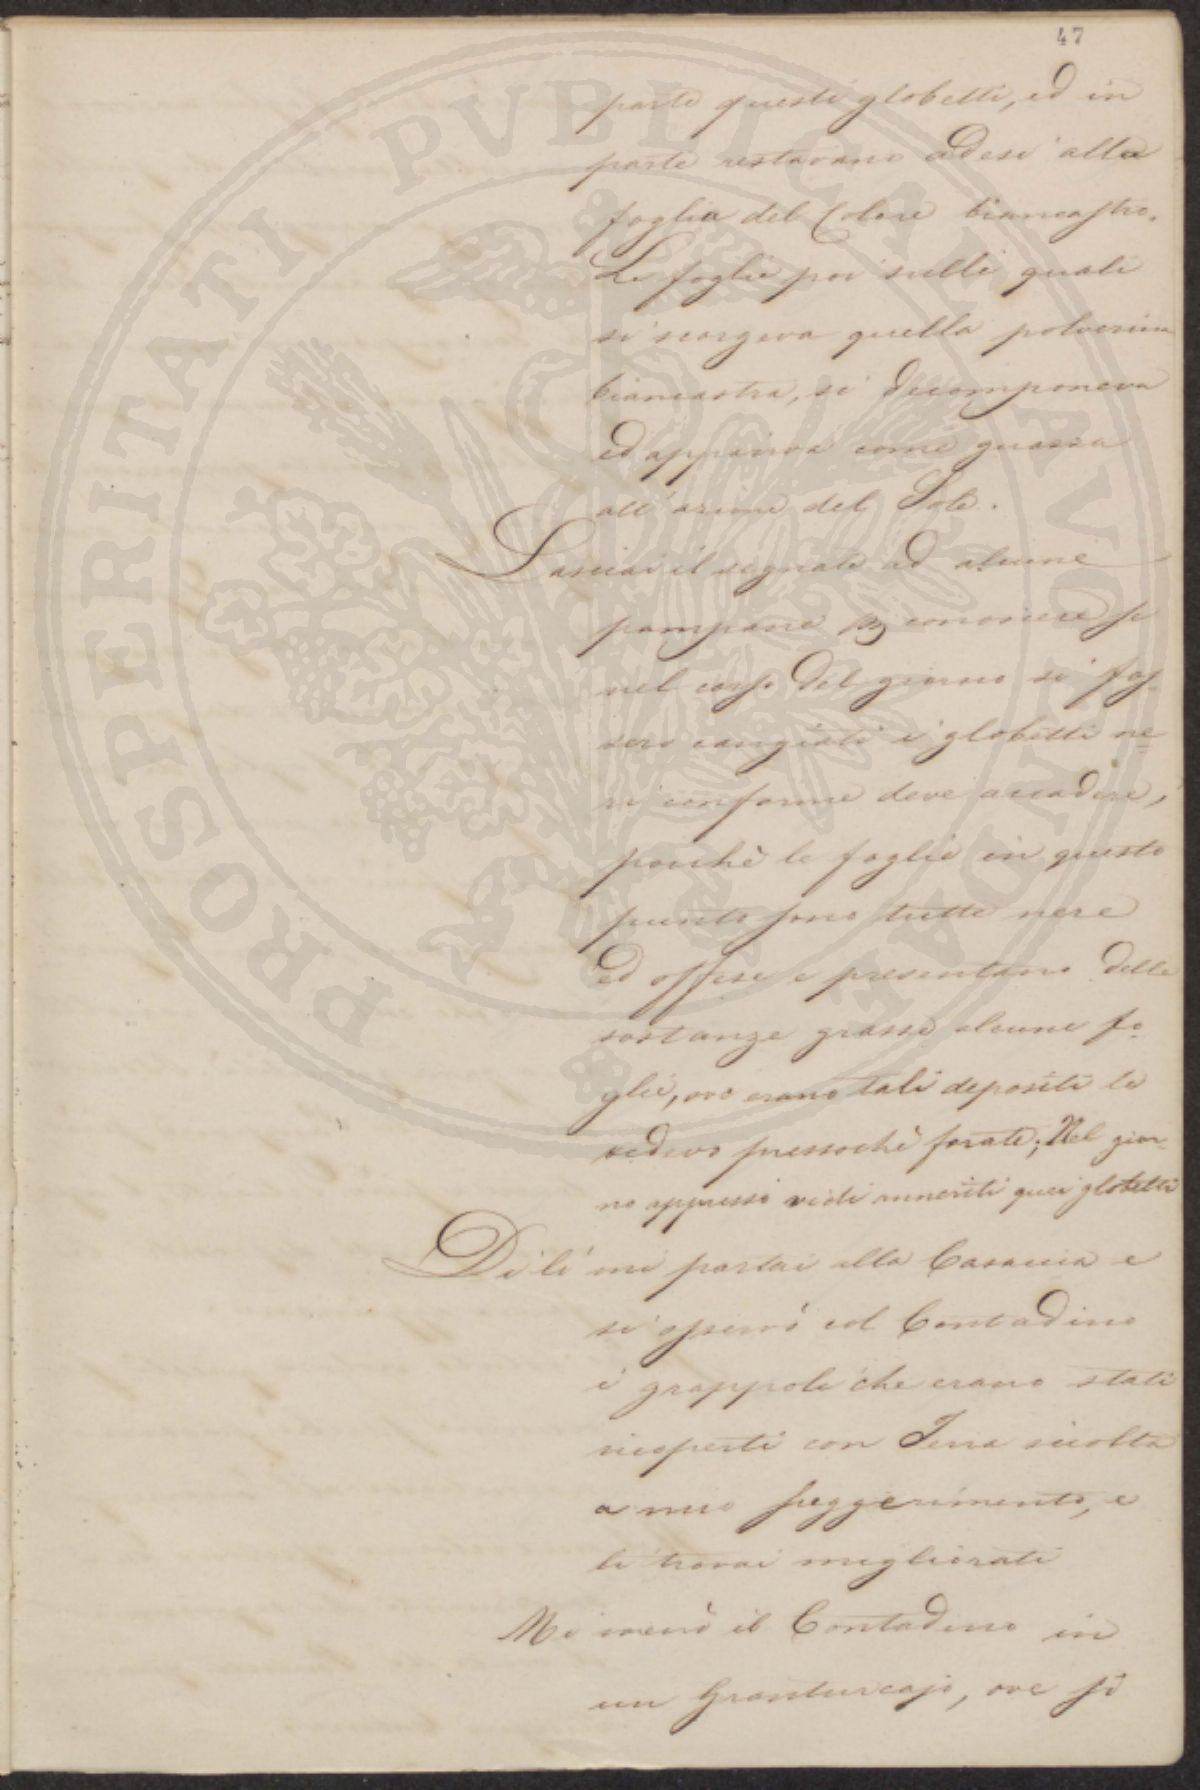 47
parte questi globetti, ed in
parte restavano adesi alla
foglia del Colore biancastro.
Le foglie poi sulle quali
si scorgeva quella polverina
biancastra, si decomponeva
ed appariva come guasta
all'azione del Sole.
Lasciai il segnale ad alcune
pampane per conoscere se
nel corso del giorno si fos-
sero cangiati i globetti ne-
ri conforme deve accadere,
poichè le foglie in questo
punto sono tutte nere
ed offese e presentano delle
sostanze grasse alcune fo-
glie, ove erano tali depositi le
vedevo pressochè forate; Nel gior-
no appresso vidi anneriti quei globetti
Di lì mi portai alla Casaccia e
si osservò col Contadino
i grappoli che erano stati
ricoperti con Terra sciolta
a mio suggerimento, e
li trovai migliorati
Mi menò il Contadino in
un Granturcajo, ove si
PROSPERITATI PVBLICAE AVGENDAE